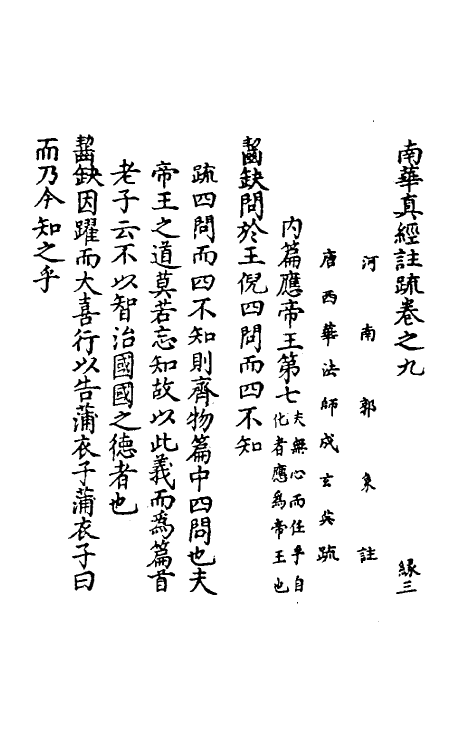 南華真經註疏卷之九 緣三
河南郭象註
唐西華法師成玄英疏
內篇應帝王第七夫無心而任乎自
化者應為帝王也
齧缺問於王倪四問而四不知
疏四問而四不知則齊物篇中四問也夫
帝王之道莫若忘知故以此義而為篇首
老子云不以智治國國之德者也
齧缺因躍而大喜行以告蒲衣子蒲衣子曰
而乃今知之乎